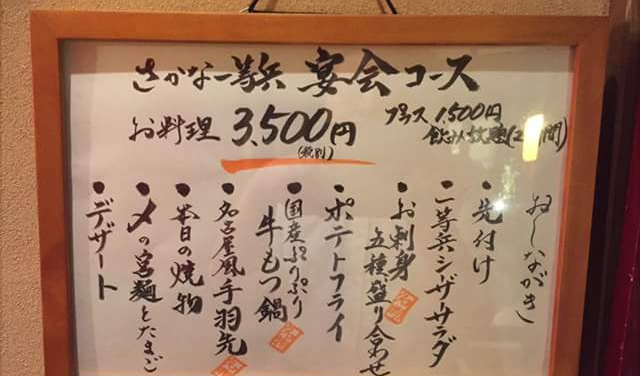 さかな一等兵 宴会コース
お料理 3,500円
(税別)
プラス 1,500円
飲み放題(2時間)
おしながき
・先付け
・一等兵シーザーサラダ
・お刺身
五種盛り合わせ
・ポテトフライ
・国産ぷりぷり
牛もつ鍋
・名古屋風手羽先
・本日の焼物
・〆の宮麺とたまご
・デザート